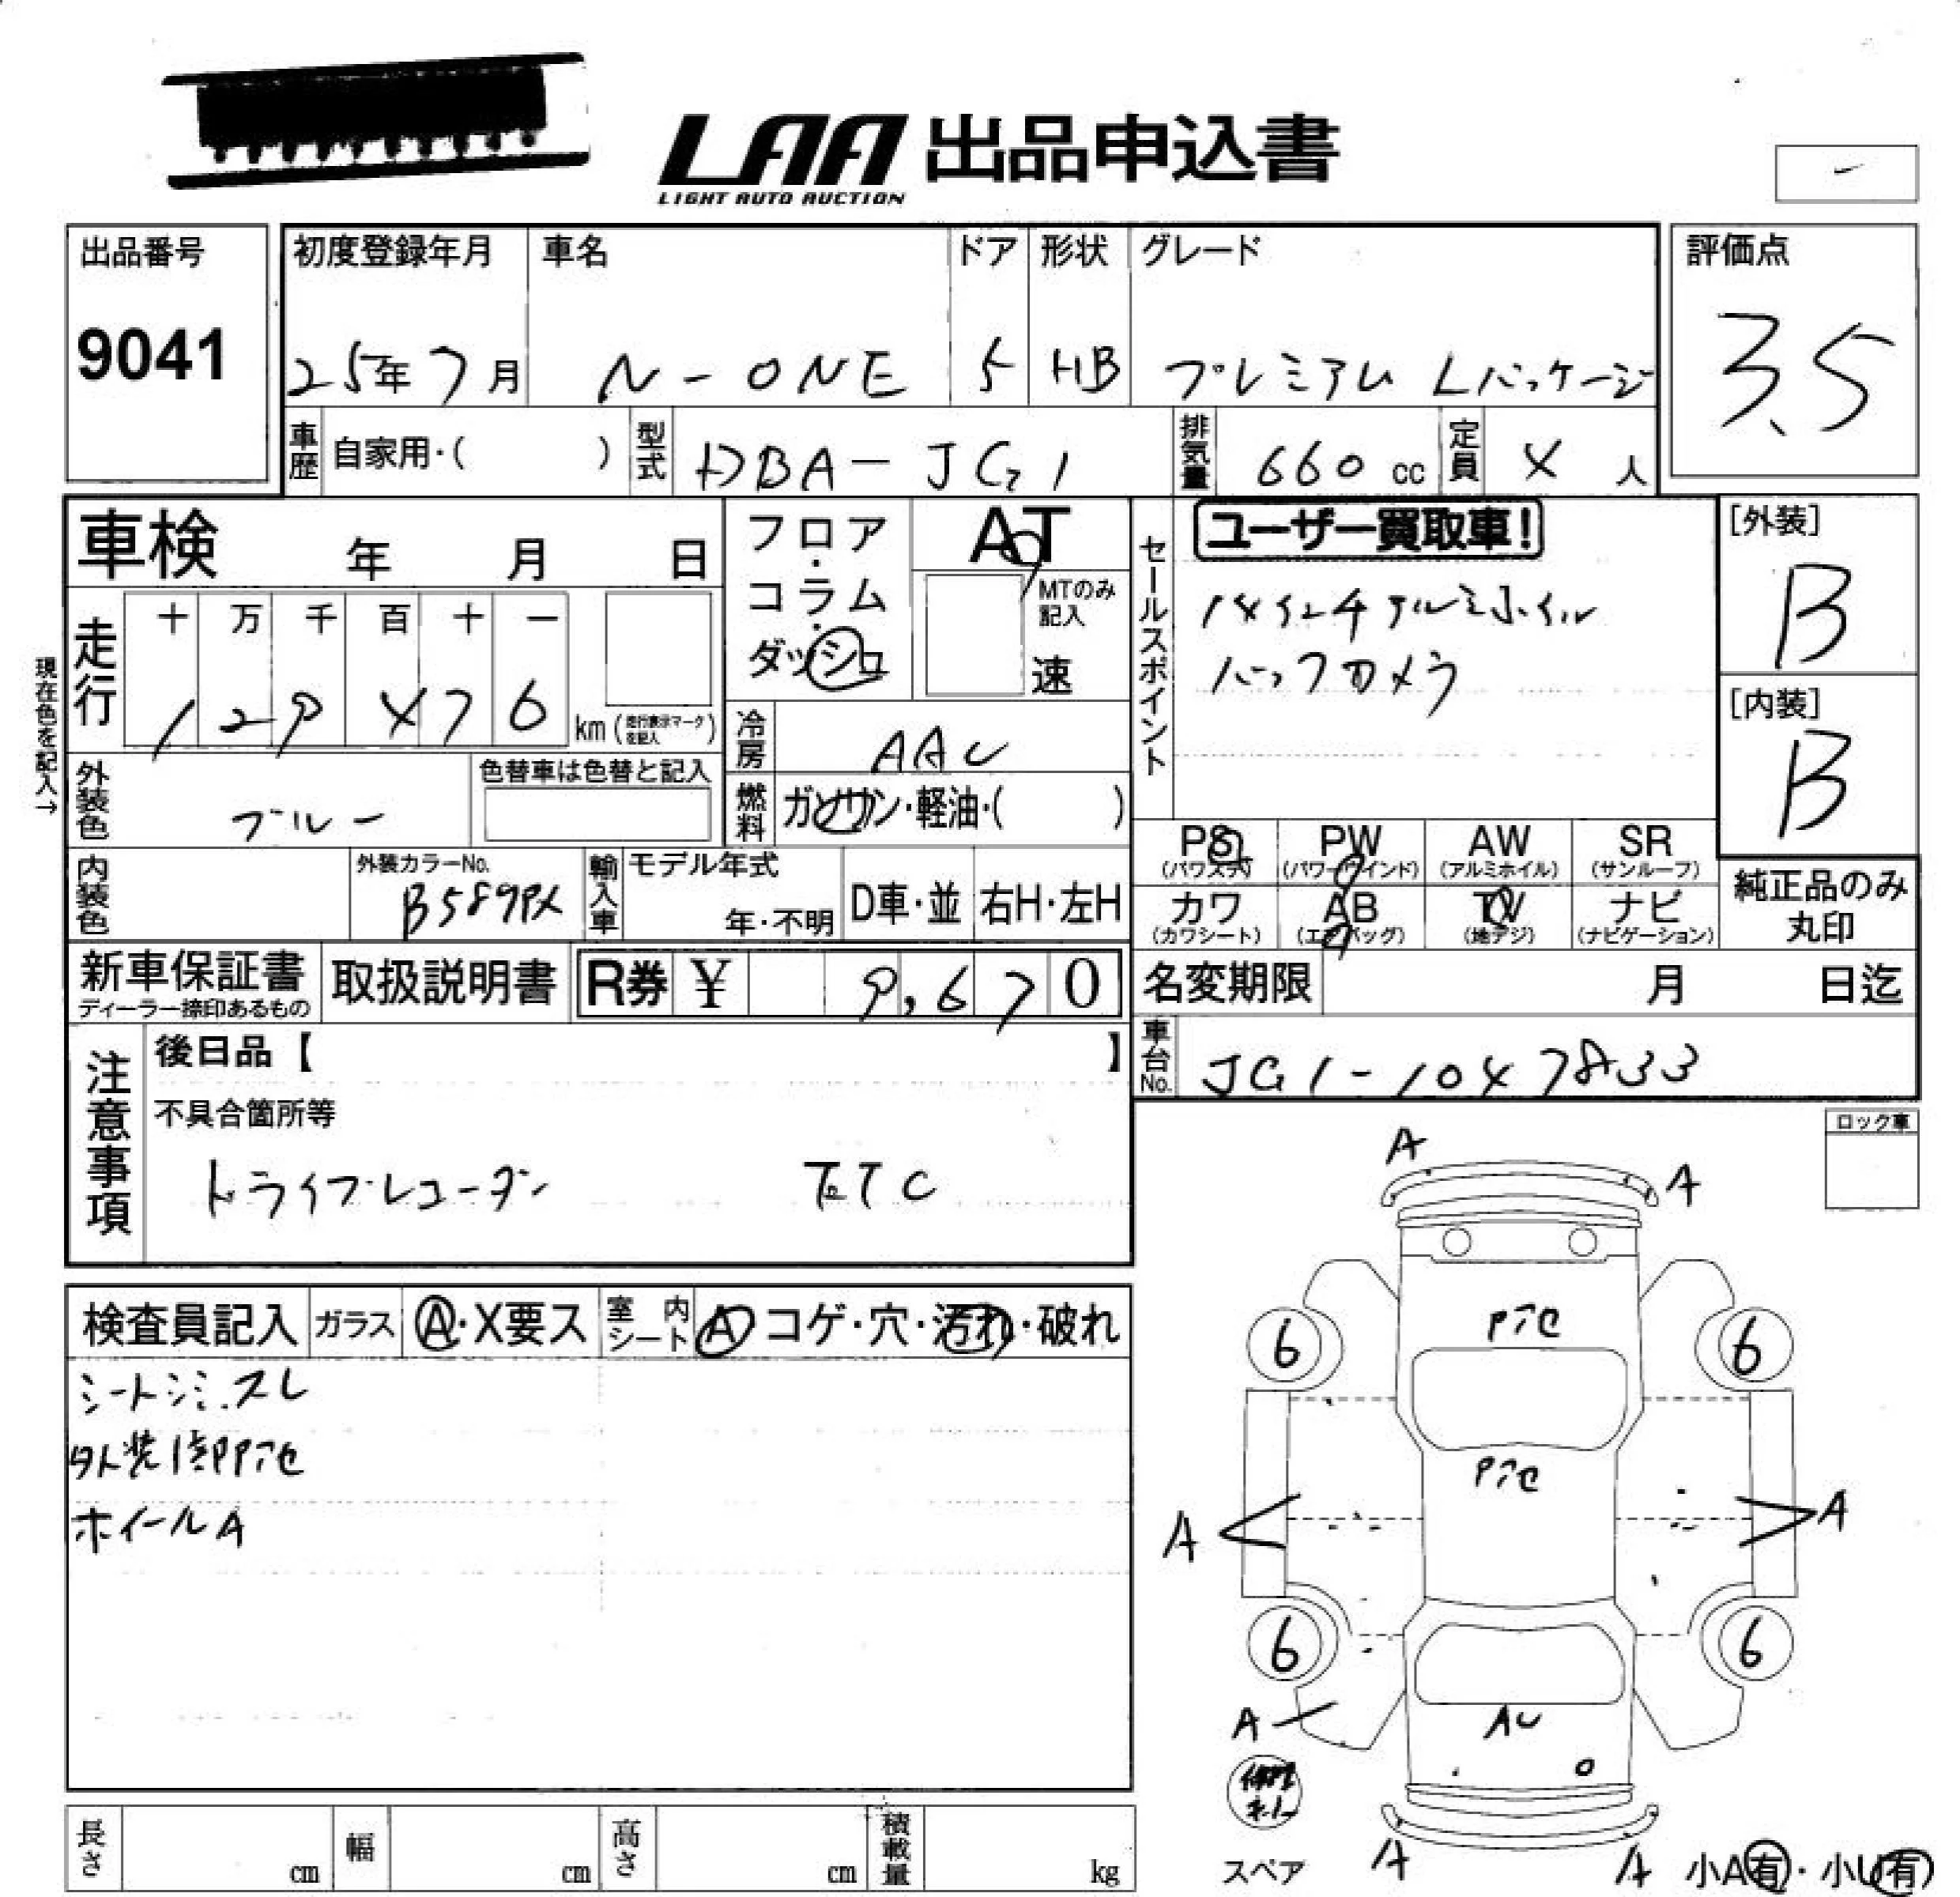 LAA 出品申込書
LIGHT AUTO AUCTION
出品番号
9041
初度登録年月
25年7月
車名
N-ONE
ドア
5
形状
HB
グレード
プレミアム Lパッケージ
評価点
3.5
車歴 自家用・( )
型式 DBA-JG1
排気量 660 cc
定員 4 人
車検 年 月 日
フロア・コラム・ダッシュ
AT
MTのみ記入
速
セールスポイント
ユーザー買取車!
14インチアルミホイル
バックカメラ
[外装]
B
[内装]
B
現在色を記入→
走行
十 万 千 百 十 一
1 2 9 4 7 6 km (走行表示マークを記入)
冷房 AAC
外装色 ブルー
色替車は色替と記入
燃料 ガソリン・軽油・( )
内装色
外装カラーNo.
B589PX
輸入車
モデル年式
年・不明
D車・並
右H・左H
PS (パワステ)
PW (パワーウインド)
AW (アルミホイル)
SR (サンルーフ)
カワ (カワシート)
AB (エアバッグ)
TV (地デジ)
ナビ (ナビゲーション)
純正品のみ丸印
新車保証書
ディーラー捺印あるもの
取扱説明書
R券 ¥ 9,670
名変期限 月 日迄
車台No. JG1-1047833
注意事項
後日品【 】
不具合箇所等
ドライブレコーダー ETC
ロック車
検査員記入
ガラス A・X要ス
室内シート A コゲ・穴・汚れ・破れ
シートシミ.スレ
外装1部Pアセ
ホイールA
A
A
Pアセ
6
6
Pアセ
A
A
6
6
A
AU
スペア
A
A
小A有・小U有
長さ cm
幅 cm
高さ cm
積載量 kg